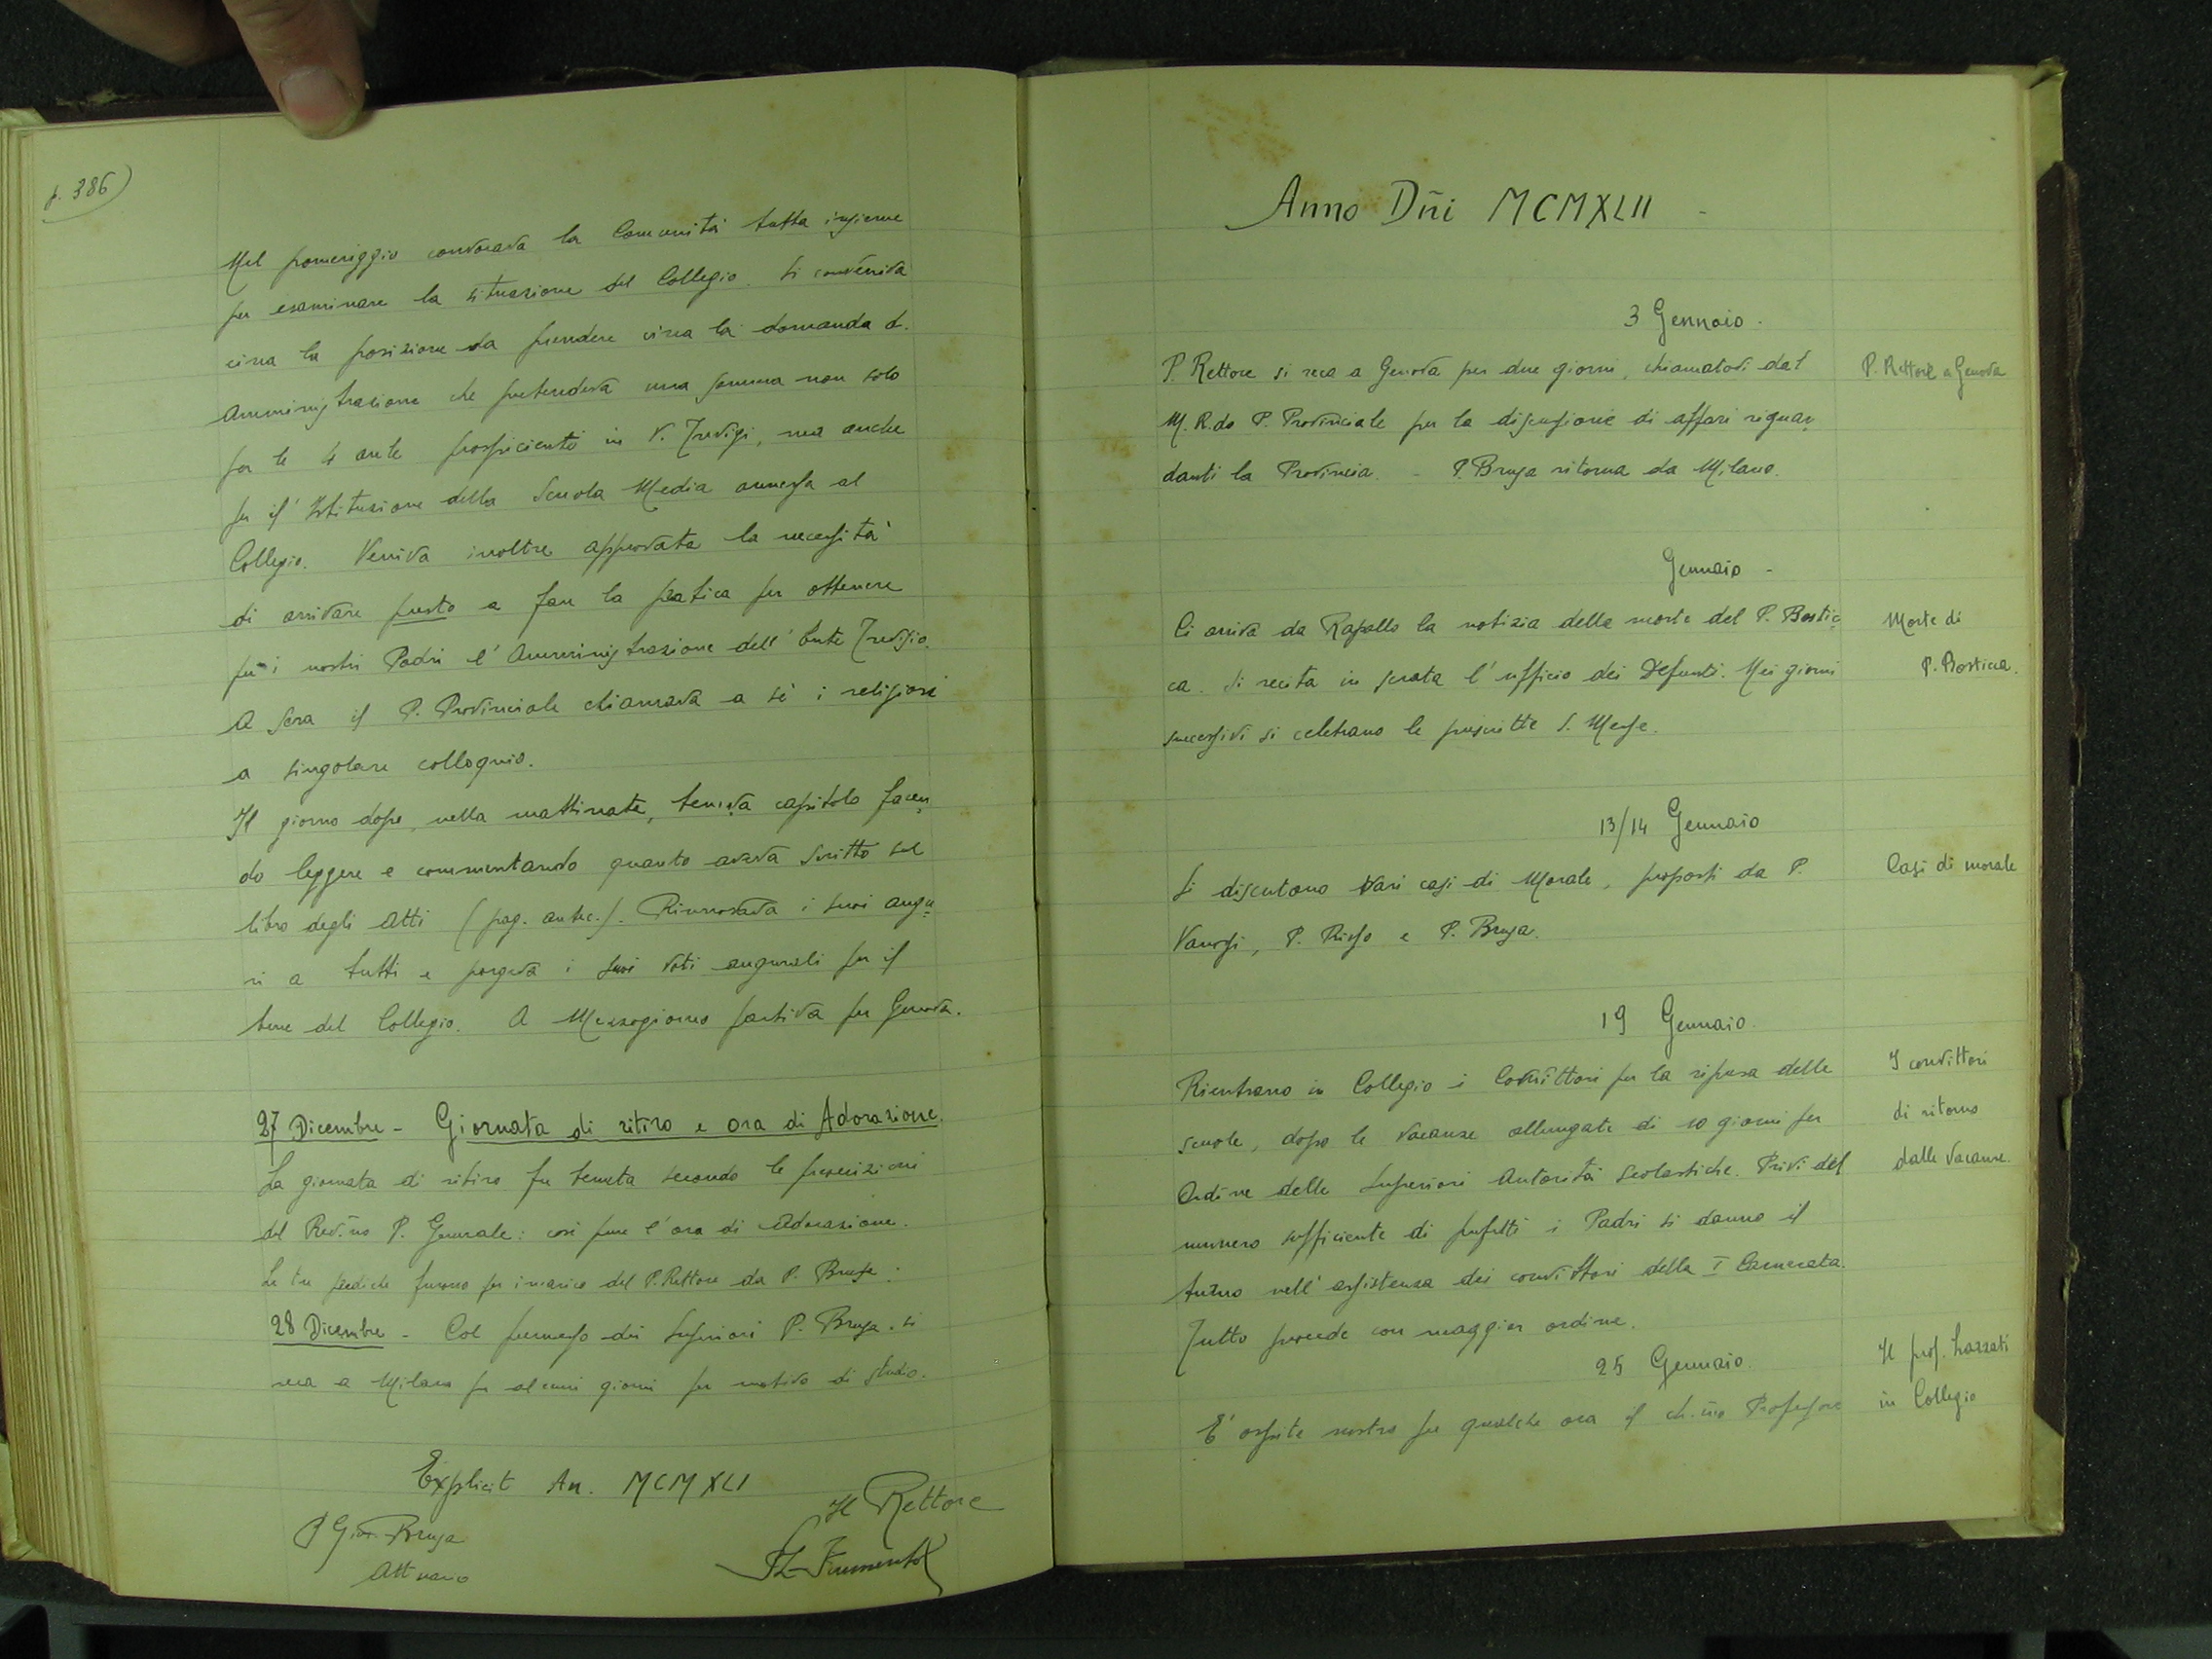 p. 386)
Nel pomeriggio convocava la Comunità tutta insieme
per esaminare la situazione del Collegio. Si conveniva
circa la posizione da prendere circa la domanda d.
Amministrazione che pretendeva una somma non solo
per le 4 aule prospicienti in V. Trevigi, ma anche
per il' Istituzione della Scuola Media annessa al
Collegio. Veniva inoltre approvata la necessità
di arrivare presto a fare la pratica per ottenere
per i nostri Padri l'Amministrazione dell'Ente Trevisio.
A sera il P. Provinciale chiamava a sè i religiosi
a singolare colloquio.
Il giorno dopo, nella mattinata, teneva capitolo facen
do leggere e commentando quanto aveva scritto sul
libro degli Atti (pag. antec.). Rinnovava i suoi augu
ri a tutti e porgeva i suoi voti augurali per il
bene del Collegio. A Mezzogiorno partiva per Genova.
27 Dicembre - Giornata di ritiro e ora di Adorazione.
La giornata di ritiro fu tenuta secondo le prescrizioni
del Rev.mo P. Generale: così pure l'ora di Adorazione.
Le tre prediche furono per incarico del P. Rettore da P. Brusa.
28 Dicembre - Col permesso dei Superiori P. Brusa si
reca a Milano per alcuni giorni per motivo di studio.
Explicit An. MCMXLI
P Giov. Brusa
Attuario
Il Rettore
Frumento
Anno Dñi MCMXLII -
3 Gennaio.
P. Rettore si reca a Genova per due giorni, chiamatovi dal
M. R.do P. Provinciale per la discussione di affari riguar
danti la Provincia. - P. Brusa ritorna da Milano.
P. Rettore a Genova
Gennaio -
Ci arriva da Rapallo la notizia della morte del P. Bostic
ca. Si recita in serata l'ufficio dei Defunti. Nei giorni
successivi si celebrano le prescritte S. Messe.
Morte di
P. Bosticca.
13/14 Gennaio
Si discutono vari casi di Morale, proposti da P.
Vanossi, P. Risso e P. Brusa.
Casi di morale
19 Gennaio.
Rientrano in Collegio i Convittori per la ripresa delle
scuole, dopo le vacanze allungate di 10 giorni per
Ordine delle Superiori Autorità Scolastiche. Privi del
numero sufficiente di prefetti i Padri si danno il
turno nell'assistenza dei convittori della I Camerata.
Tutto procede con maggior ordine.
I convittori
di ritorno
dalle vacanze.
25 Gennaio.
E' ospite nostro per qualche ora il ch.mo Professore
Il prof. Lazzati
in Collegio